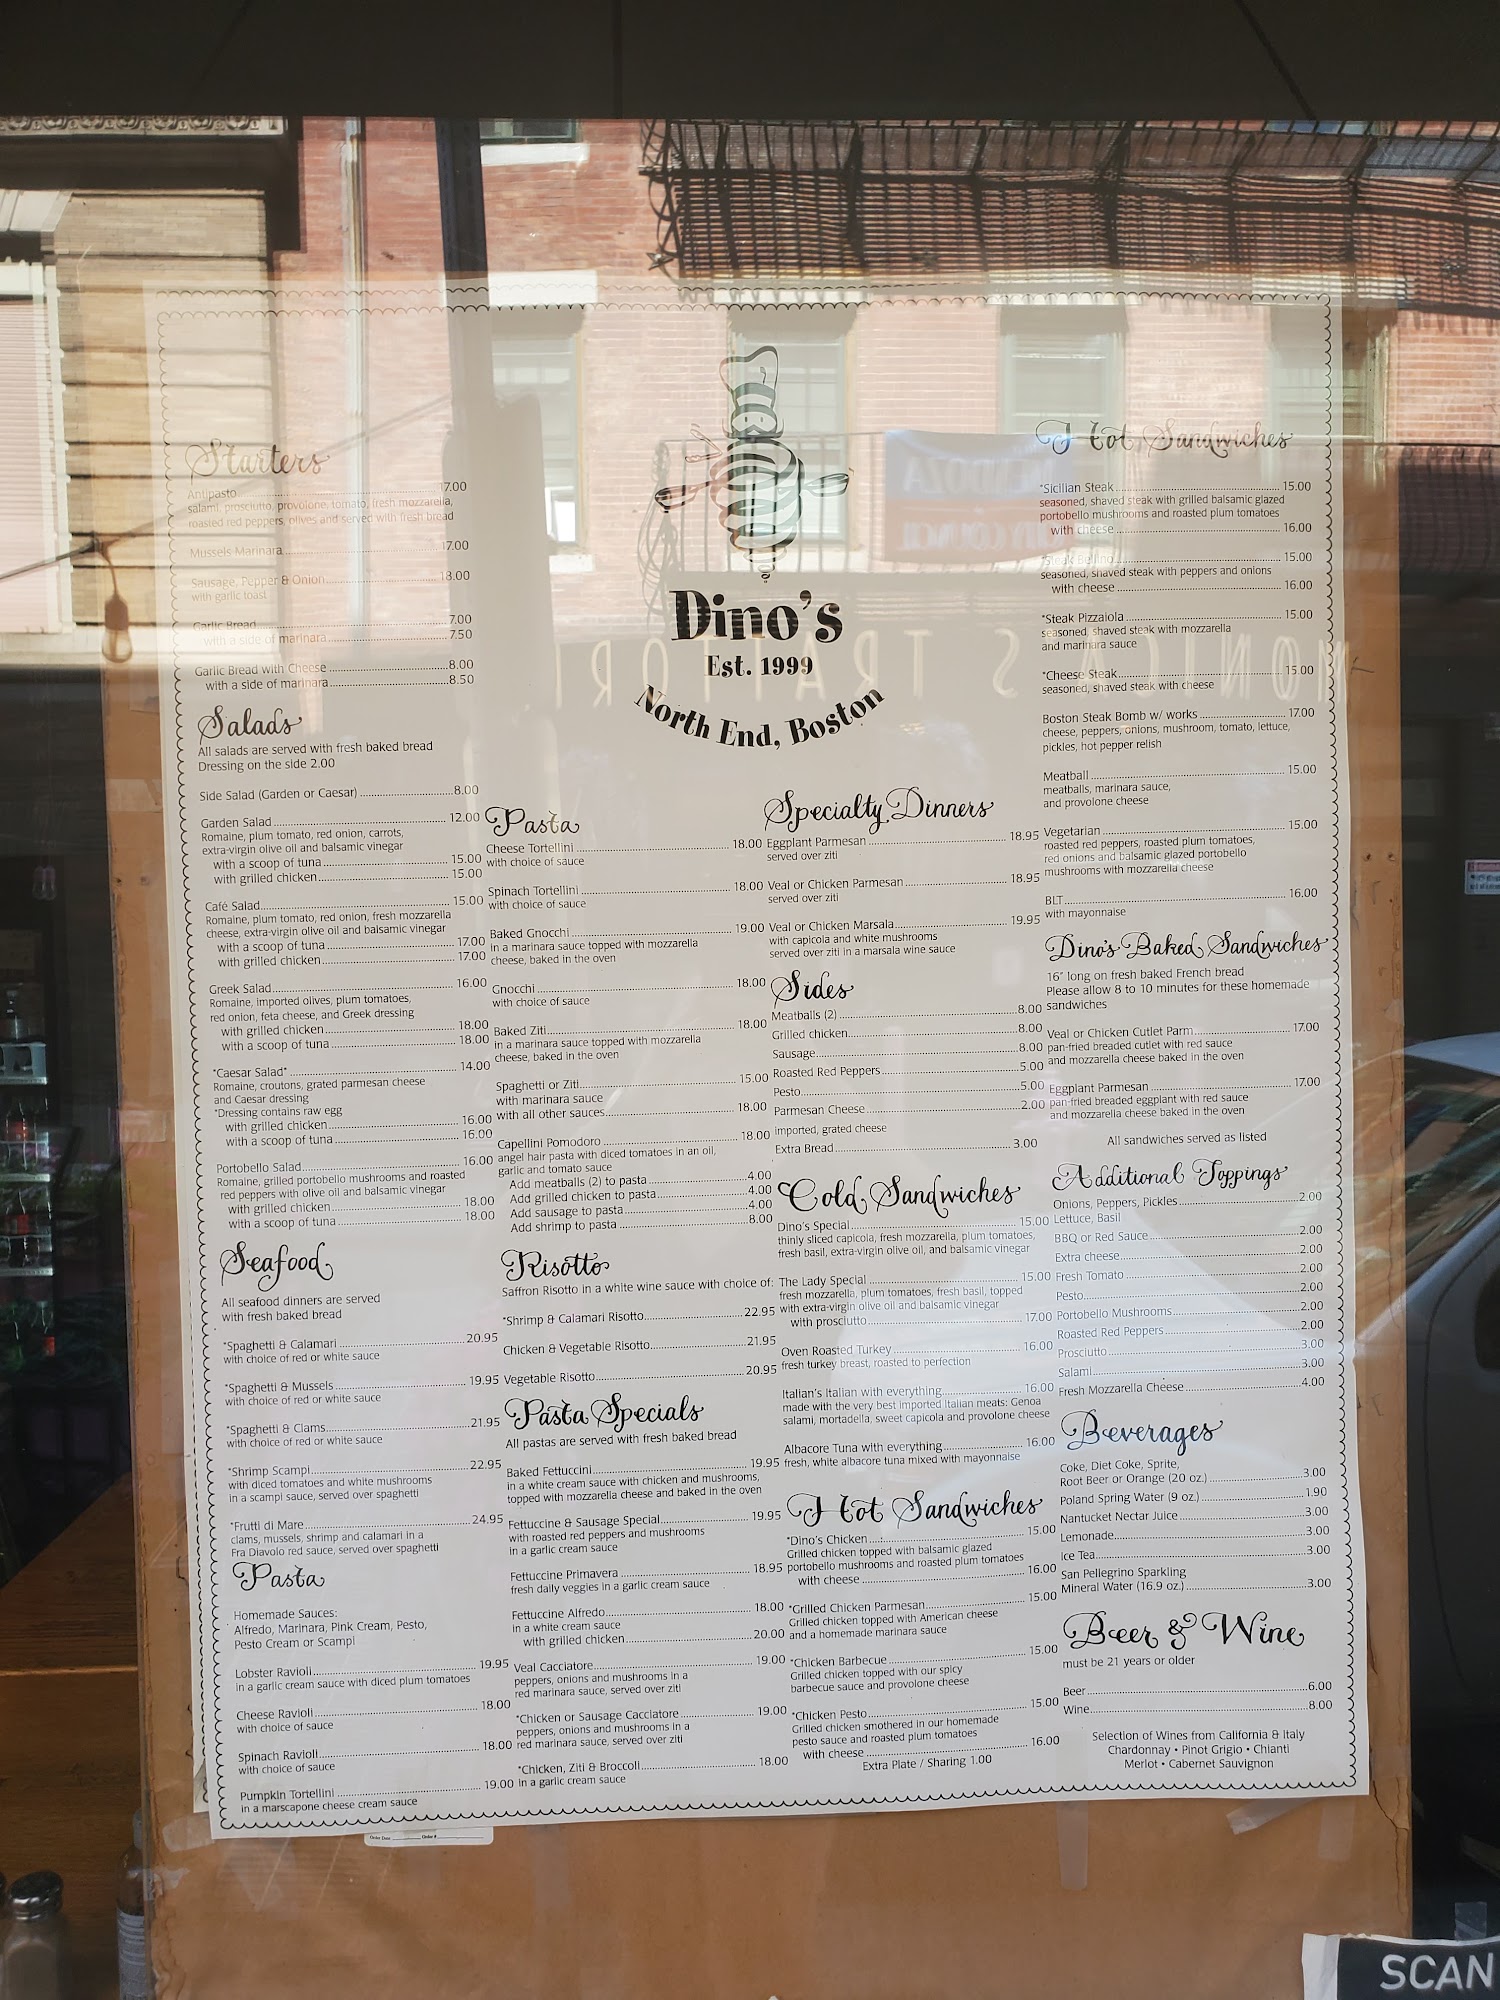 Dino's
Est. 1999
North End, Boston
Starters
Antipasto 17.00
salami, prosciutto, provolone, tomato, fresh mozzarella,
roasted red peppers, olives and served with fresh bread
Mussels Marinara 17.00
Sausage, Pepper & Onion 18.00
with garlic toast
Garlic Bread 7.00
with a side of marinara 7.50
Garlic Bread with Cheese 8.00
with a side of marinara 8.50
Salads
All salads are served with fresh baked bread
Dressing on the side 2.00
Side Salad (Garden or Caesar) 8.00
Garden Salad 12.00
Romaine, plum tomato, red onion, carrots,
extra-virgin olive oil and balsamic vinegar
with a scoop of tuna 15.00
with grilled chicken 15.00
Café Salad 15.00
Romaine, plum tomato, red onion, fresh mozzarella
cheese, extra-virgin olive oil and balsamic vinegar
with a scoop of tuna 17.00
with grilled chicken 17.00
Greek Salad 16.00
Romaine, imported olives, plum tomatoes,
red onion, feta cheese, and Greek dressing
with grilled chicken 18.00
with a scoop of tuna 18.00
*Caesar Salad* 14.00
Romaine, croutons, grated parmesan cheese
and Caesar dressing
*Dressing contains raw egg
with grilled chicken 16.00
with a scoop of tuna 16.00
Portobello Salad 16.00
Romaine, grilled portobello mushrooms and roasted
red peppers with olive oil and balsamic vinegar
with grilled chicken 18.00
with a scoop of tuna 18.00
Seafood
All seafood dinners are served
with fresh baked bread
*Spaghetti & Calamari 20.95
with choice of red or white sauce
*Spaghetti & Mussels 19.95
with choice of red or white sauce
*Spaghetti & Clams 21.95
with choice of red or white sauce
*Shrimp Scampi 22.95
with diced tomatoes and white mushrooms
in a scampi sauce, served over spaghetti
*Frutti di Mare 24.95
clams, mussels, shrimp and calamari in a
Fra Diavolo red sauce, served over spaghetti
Pasta
Homemade Sauces:
Alfredo, Marinara, Pink Cream, Pesto,
Pesto Cream or Scampi
Lobster Ravioli 19.95
in a garlic cream sauce with diced plum tomatoes
Cheese Ravioli 18.00
with choice of sauce
Spinach Ravioli 18.00
with choice of sauce
Pumpkin Tortellini 19.00
in a marscapone cheese cream sauce
Pasta
Cheese Tortellini 18.00
with choice of sauce
Spinach Tortellini 18.00
with choice of sauce
Baked Gnocchi 19.00
in a marinara sauce topped with mozzarella
cheese, baked in the oven
Gnocchi 18.00
with choice of sauce
Baked Ziti 18.00
in a marinara sauce topped with mozzarella
cheese, baked in the oven
Spaghetti or Ziti 15.00
with marinara sauce
with all other sauces 18.00
Capellini Pomodoro 18.00
angel hair pasta with diced tomatoes in an oil,
garlic and tomato sauce
Add meatballs (2) to pasta 4.00
Add grilled chicken to pasta 4.00
Add sausage to pasta 4.00
Add shrimp to pasta 8.00
Risotto
Saffron Risotto in a white wine sauce with choice of:
*Shrimp & Calamari Risotto 22.95
Chicken & Vegetable Risotto 21.95
Vegetable Risotto 20.95
Pasta Specials
All pastas are served with fresh baked bread
Baked Fettuccini 19.95
in a white cream sauce with chicken and mushrooms,
topped with mozzarella cheese and baked in the oven
Fettuccine & Sausage Special 19.95
with roasted red peppers and mushrooms
in a garlic cream sauce
Fettuccine Primavera 18.95
fresh daily veggies in a garlic cream sauce
Fettuccine Alfredo 18.00
in a white cream sauce
with grilled chicken 20.00
Veal Cacciatore 19.00
peppers, onions and mushrooms in a
red marinara sauce, served over ziti
*Chicken or Sausage Cacciatore 19.00
peppers, onions and mushrooms in a
red marinara sauce, served over ziti
*Chicken, Ziti & Broccoli 18.00
in a garlic cream sauce
Specialty Dinners
Eggplant Parmesan 18.95
served over ziti
Veal or Chicken Parmesan 18.95
served over ziti
Veal or Chicken Marsala 19.95
with capicola and white mushrooms
served over ziti in a marsala wine sauce
Sides
Meatballs (2) 8.00
Grilled chicken 8.00
Sausage 8.00
Roasted Red Peppers 5.00
Pesto 5.00
Parmesan Cheese 2.00
imported, grated cheese
Extra Bread 3.00
Cold Sandwiches
Dino's Special 15.00
thinly sliced capicola, fresh mozzarella, plum tomatoes,
fresh basil, extra-virgin olive oil, and balsamic vinegar
The Lady Special 15.00
fresh mozzarella, plum tomatoes, fresh basil, topped
with extra-virgin olive oil and balsamic vinegar
with prosciutto 17.00
Oven Roasted Turkey 16.00
fresh turkey breast, roasted to perfection
Italian's Italian with everything 16.00
made with the very best imported Italian meats: Genoa
salami, mortadella, sweet capicola and provolone cheese
Albacore Tuna with everything 16.00
fresh, white albacore tuna mixed with mayonnaise
Hot Sandwiches
*Dino's Chicken 15.00
Grilled chicken topped with balsamic glazed
portobello mushrooms and roasted plum tomatoes
with cheese 16.00
*Grilled Chicken Parmesan 15.00
Grilled chicken topped with American cheese
and a homemade marinara sauce
*Chicken Barbecue 15.00
Grilled chicken topped with our spicy
barbecue sauce and provolone cheese
*Chicken Pesto 15.00
Grilled chicken smothered in our homemade
pesto sauce and roasted plum tomatoes
with cheese 16.00
Extra Plate / Sharing 1.00
Hot Sandwiches
*Sicilian Steak 15.00
seasoned, shaved steak with grilled balsamic glazed
portobello mushrooms and roasted plum tomatoes
with cheese 16.00
*Steak Bellino 15.00
seasoned, shaved steak with peppers and onions
with cheese 16.00
*Steak Pizzaiola 15.00
seasoned, shaved steak with mozzarella
and marinara sauce
*Cheese Steak 15.00
seasoned, shaved steak with cheese
Boston Steak Bomb w/ works 17.00
cheese, peppers, onions, mushroom, tomato, lettuce,
pickles, hot pepper relish
Meatball 15.00
meatballs, marinara sauce,
and provolone cheese
Vegetarian 15.00
roasted red peppers, roasted plum tomatoes,
red onions and balsamic glazed portobello
mushrooms with mozzarella cheese
BLT 16.00
with mayonnaise
Dino's Baked Sandwiches
16" long on fresh baked French bread
Please allow 8 to 10 minutes for these homemade
sandwiches
Veal or Chicken Cutlet Parm 17.00
pan-fried breaded cutlet with red sauce
and mozzarella cheese baked in the oven
Eggplant Parmesan 17.00
pan-fried breaded eggplant with red sauce
and mozzarella cheese baked in the oven
All sandwiches served as listed
Additional Toppings
Onions, Peppers, Pickles 2.00
Lettuce, Basil
BBQ or Red Sauce 2.00
Extra cheese 2.00
Fresh Tomato 2.00
Pesto 2.00
Portobello Mushrooms 2.00
Roasted Red Peppers 2.00
Prosciutto 3.00
Salami 3.00
Fresh Mozzarella Cheese 4.00
Beverages
Coke, Diet Coke, Sprite,
Root Beer or Orange (20 oz.) 3.00
Poland Spring Water (9 oz.) 1.90
Nantucket Nectar Juice 3.00
Lemonade 3.00
Ice Tea 3.00
San Pellegrino Sparkling
Mineral Water (16.9 oz.) 3.00
Beer & Wine
must be 21 years or older
Beer 6.00
Wine 8.00
Selection of Wines from California & Italy
Chardonnay • Pinot Grigio • Chianti
Merlot • Cabernet Sauvignon
Order Date Order #
SCAN